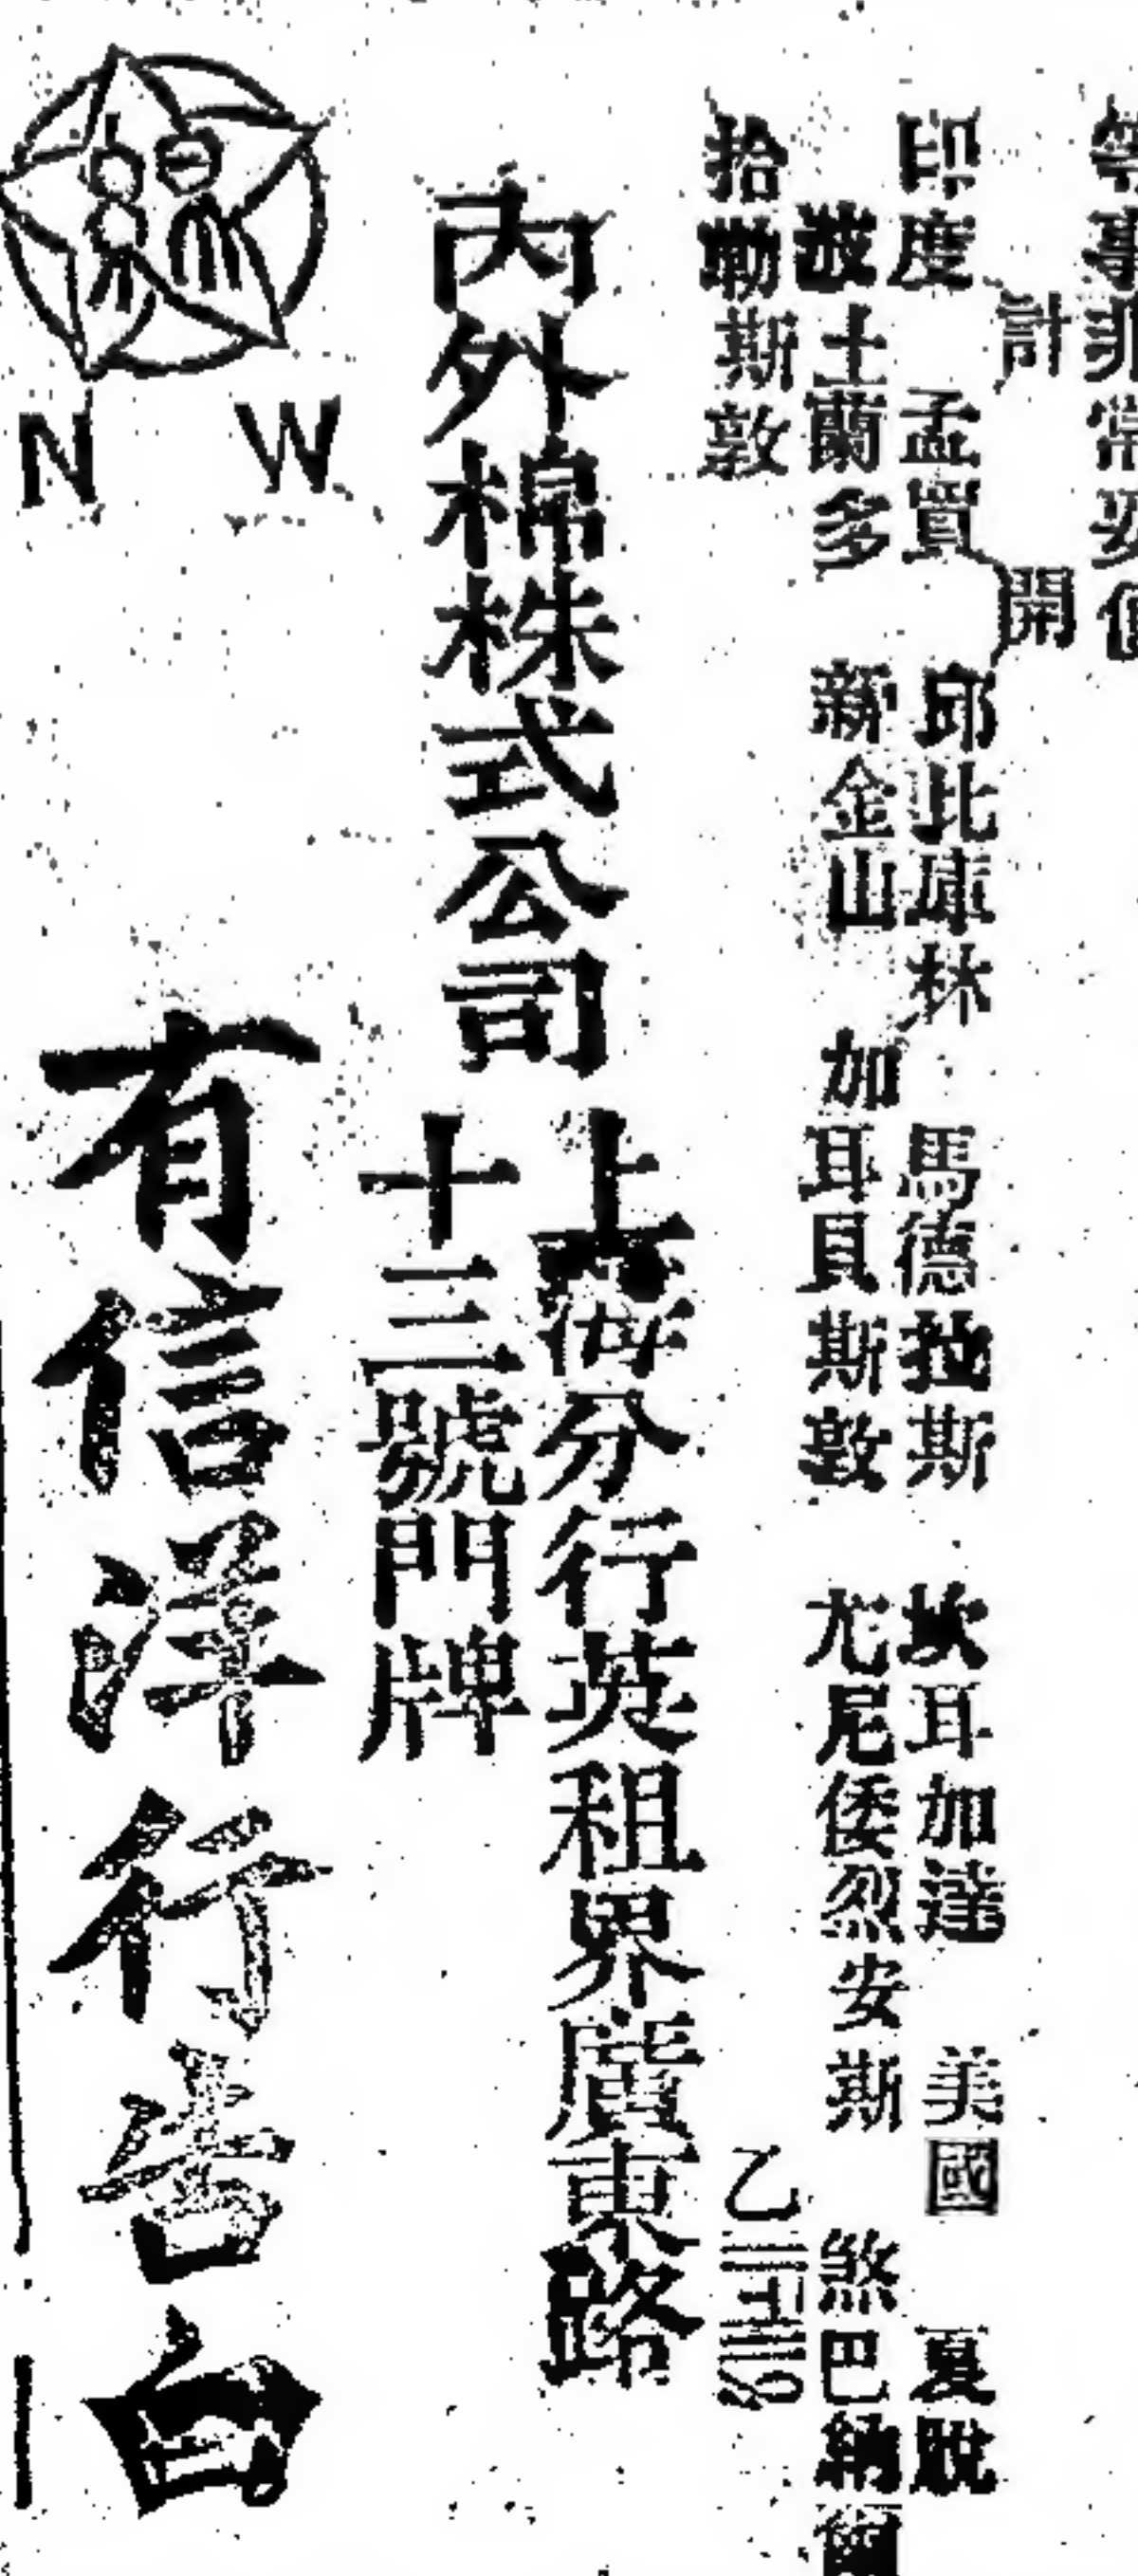 等事非常妥便
計開
印度　孟買　邱比庫林　馬德拉斯　坎耳加達　美國　夏脫
波士蘭多　新金山　加耳貝斯敦　尤尼倭烈安斯　煞巴納
拾勒斯敦
內外棉株式公司
上海分行英租界廣東路
十三號門牌
N W
有信洋行告白